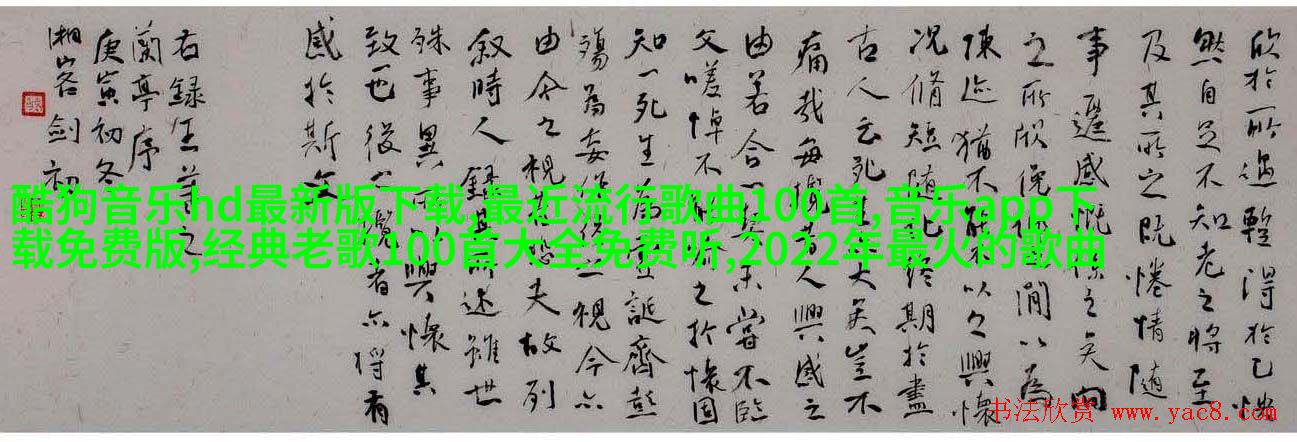 欣於所遇輕得於己快
然自足不知老之將至
及其所之既惓情隨
事遷感慨係之矣向
之所欣俛仰之間以為
陳迹猶不能不以之興懷
況脩短隨化終期於盡
古人云死生亦大矣豈不
痛哉每攬昔人興感之
由若合一契未嘗不臨
文嗟悼不能喻之於懷固
知一死生為虛誕齊彭
殤為妄作後之視今亦
由今之視昔悲夫故列
叙時人錄其所述雖世
殊事異所以興懷其
致一也後之覽者亦將有
感於斯文
右錄王羲之
蘭亭序
庚寅初冬
湘客劍初
酷狗音乐hd最新版下载,最近流行歌曲100首,音乐app下
载免费版,经典老歌100首大全免费听,2022年最火的歌曲
书法欣赏 www.yac8.com